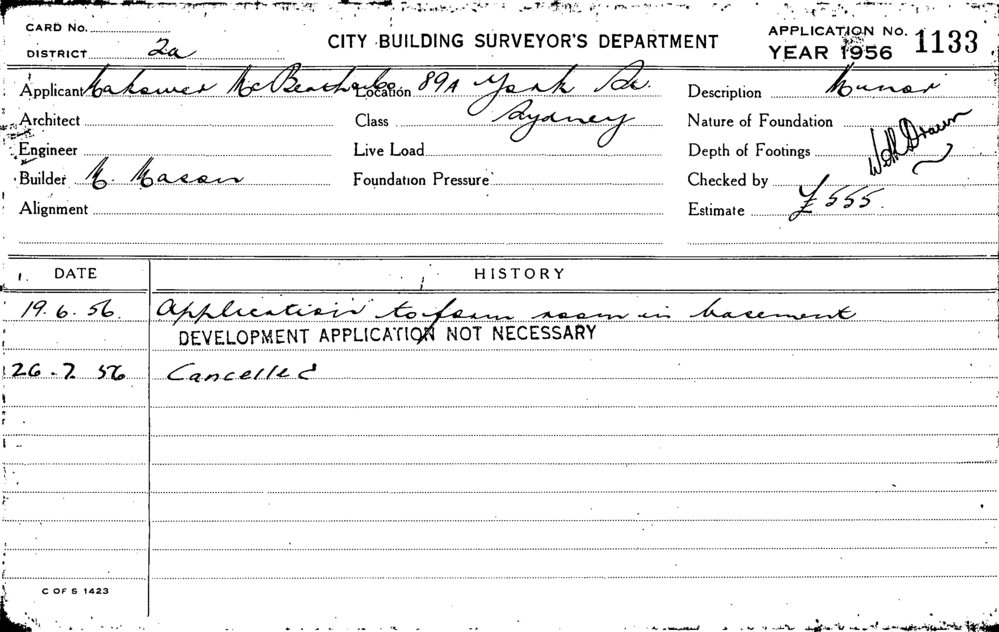 CARD No.
DISTRICT 2a
CITY BUILDING SURVEYOR'S DEPARTMENT
APPLICATION No. 1133
YEAR 1956
Applicant Makower McBeath & Co Location 89A York St. Description Minor
Architect Class Sydney Nature of Foundation
Engineer Live Load Depth of Footings WithDrawn
Builder M. Mason Foundation Pressure Checked by
Alignment Estimate £555.
DATE HISTORY
19.6.56. Application to form room in basement
DEVELOPMENT APPLICATION NOT NECESSARY
26.7.56 Cancelled
C OF S 1423